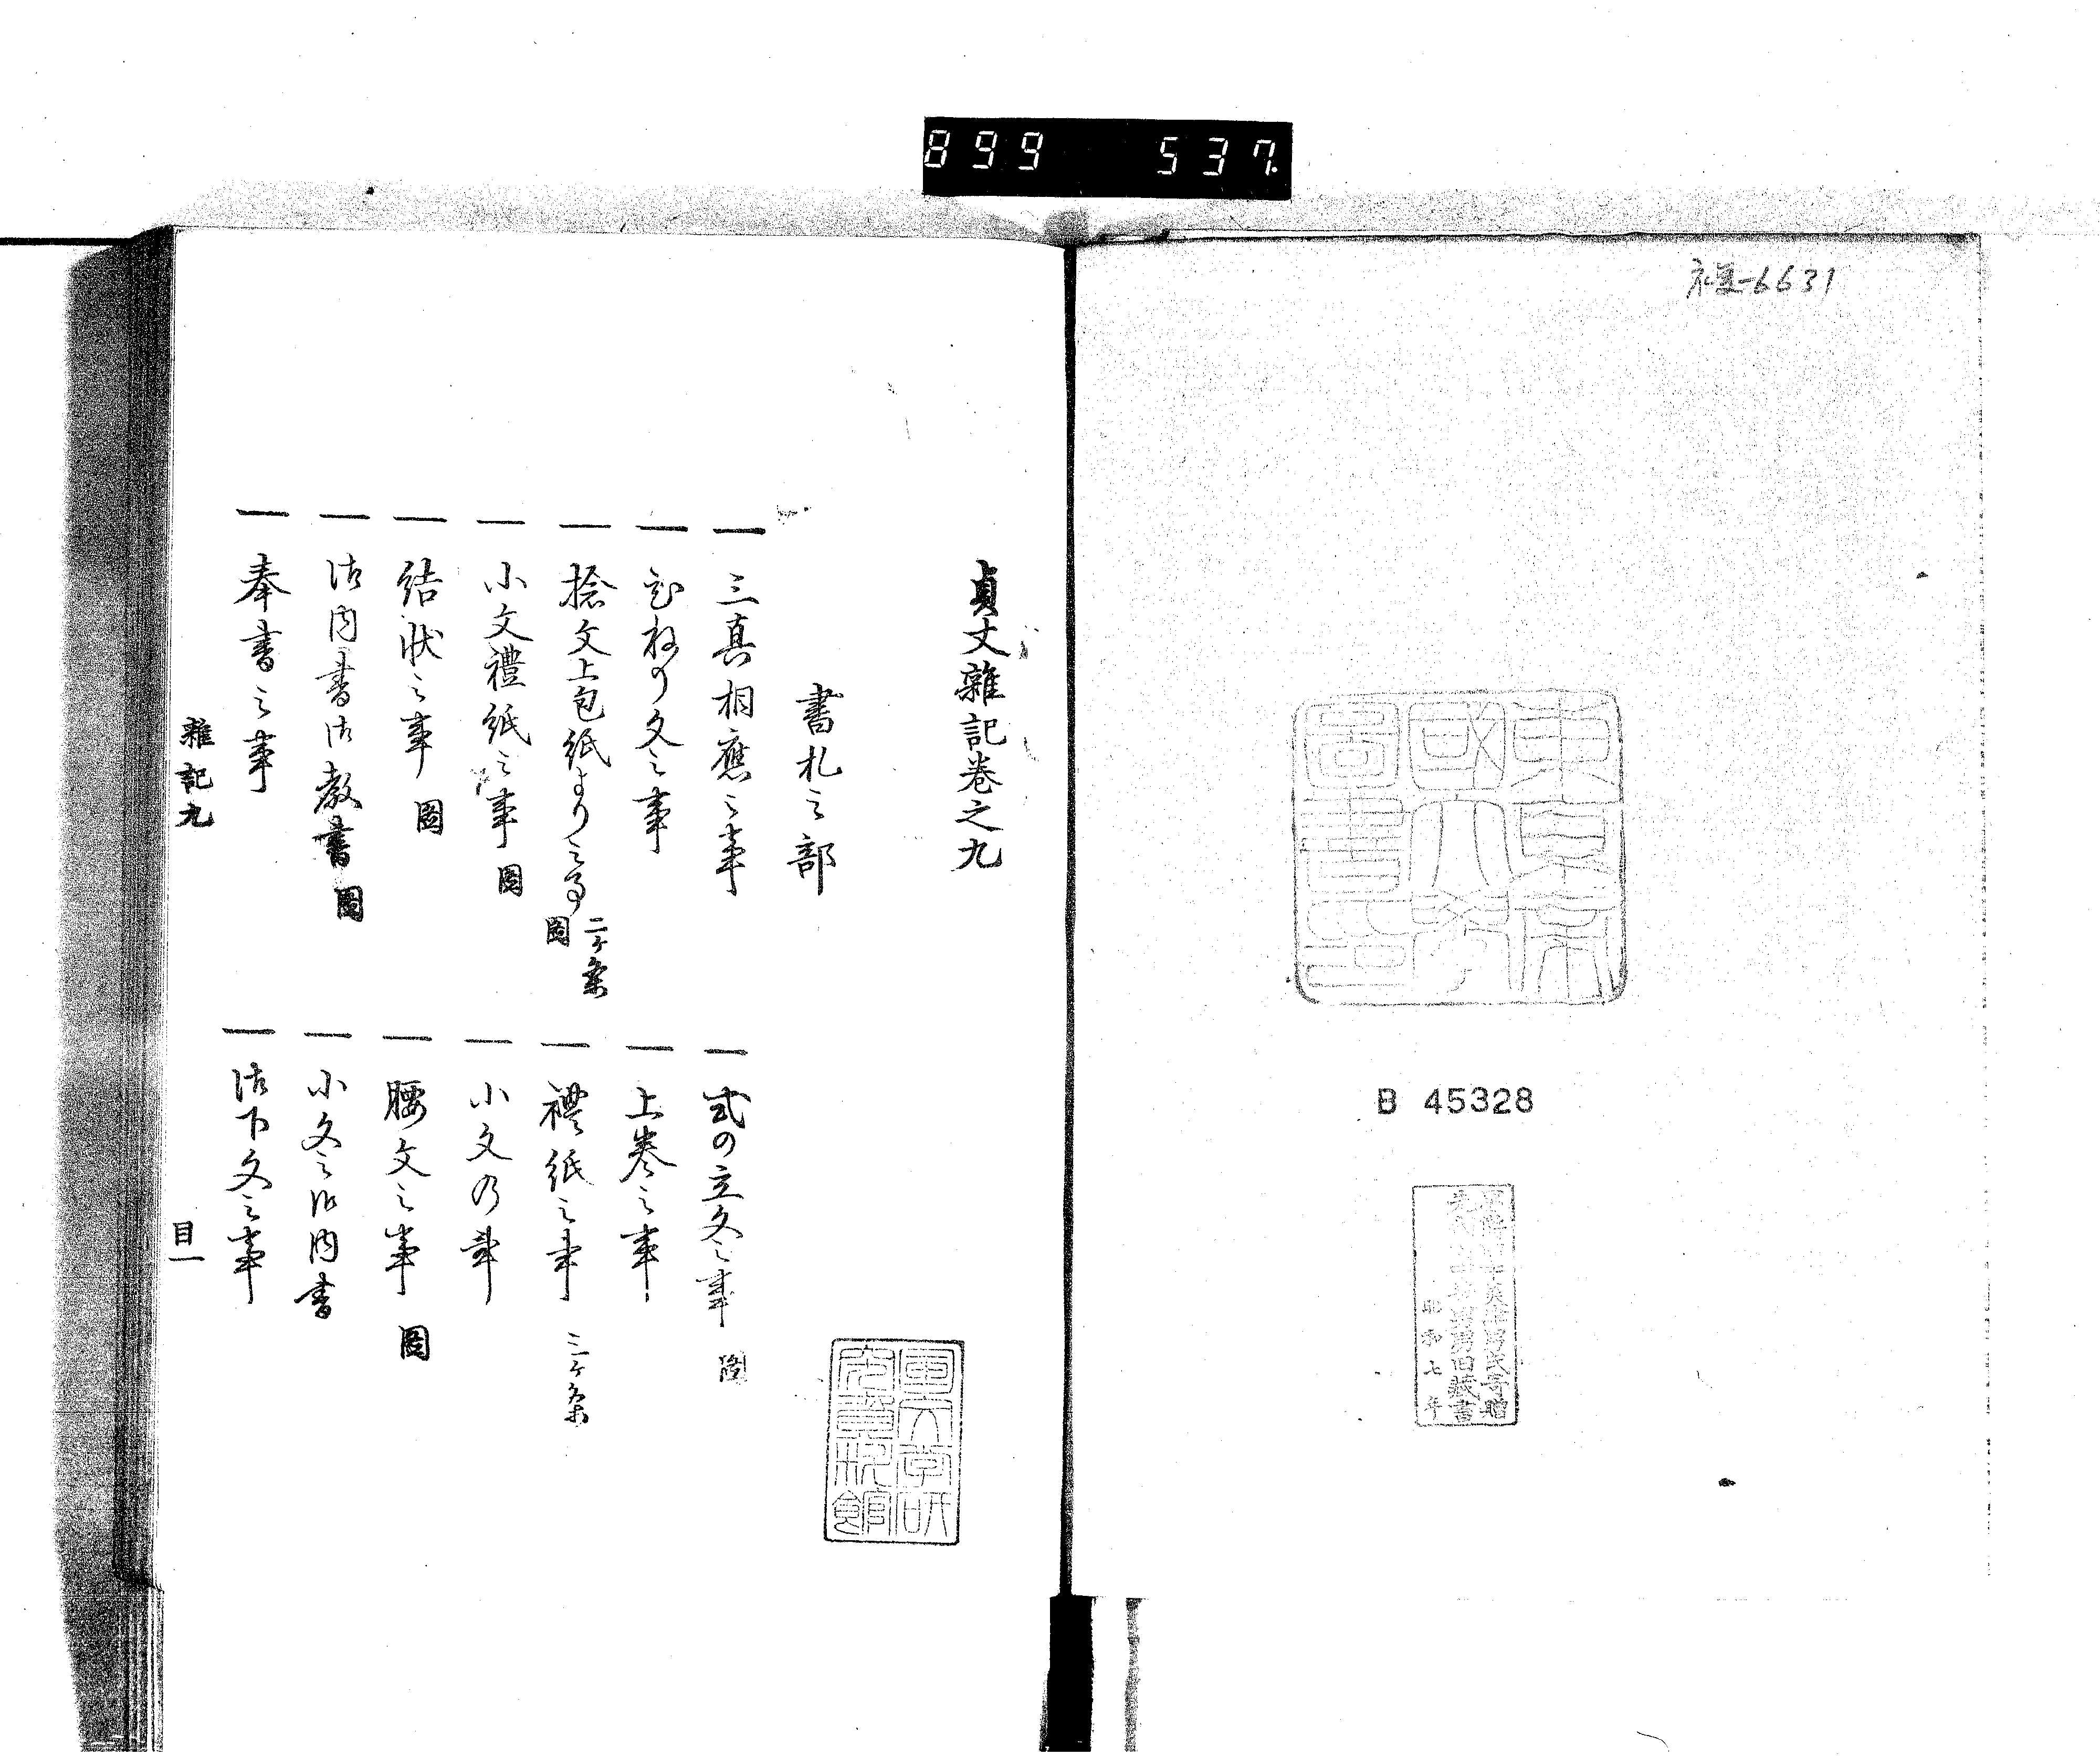 899 537.
ネ重-6631
東京帝
國大學
圖書印
B 45328
昭和七年
貞丈雜記卷之九
書札之部
一 三真相應之事
一 式の立文之事 圖
一 ひねり文之事
一 上巻之事
一 捻文上包紙よりの事 二ヶ条 圖
一 禮紙之事 三ヶ条
一 小文禮紙之事 圖
一 小文の事
一 結状之事 圖
一 腰文之事 圖
一 御内書御教書 圖
一 小文之御内書
一 奉書之事
一 御下文之事
雜記九
目一